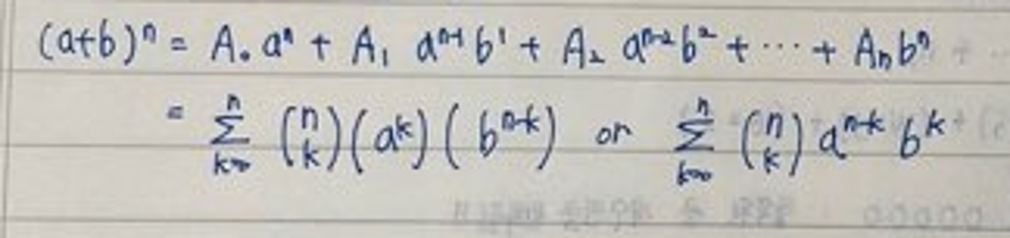 (a+b)ⁿ = A₀aⁿ + A₁ aⁿ⁻¹b¹ + A₂ aⁿ⁻²b² + ⋯ + Aₙbⁿ
= ∑ₖ₌₀ⁿ (n k)(aᵏ)(bⁿ⁻ᵏ) or ∑ₖ₌₀ⁿ (n k) aⁿ⁻ᵏ bᵏ